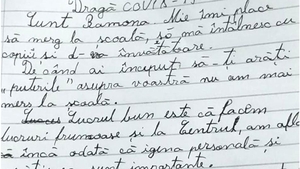 Dragă COVID-19
Sunt Ramona. Mie îmi place
să merg la scoală, să mă întâlnesc cu
copiii si d-na învătătoare.
De când ai început să-ti arăti
"puterile" asupra voastră nu am mai
mers la scoală.
Lucrul bun este că facem
lucruri frumoase si la Centrul, am aflat
încă odată că igiena personală si
sunt importante.